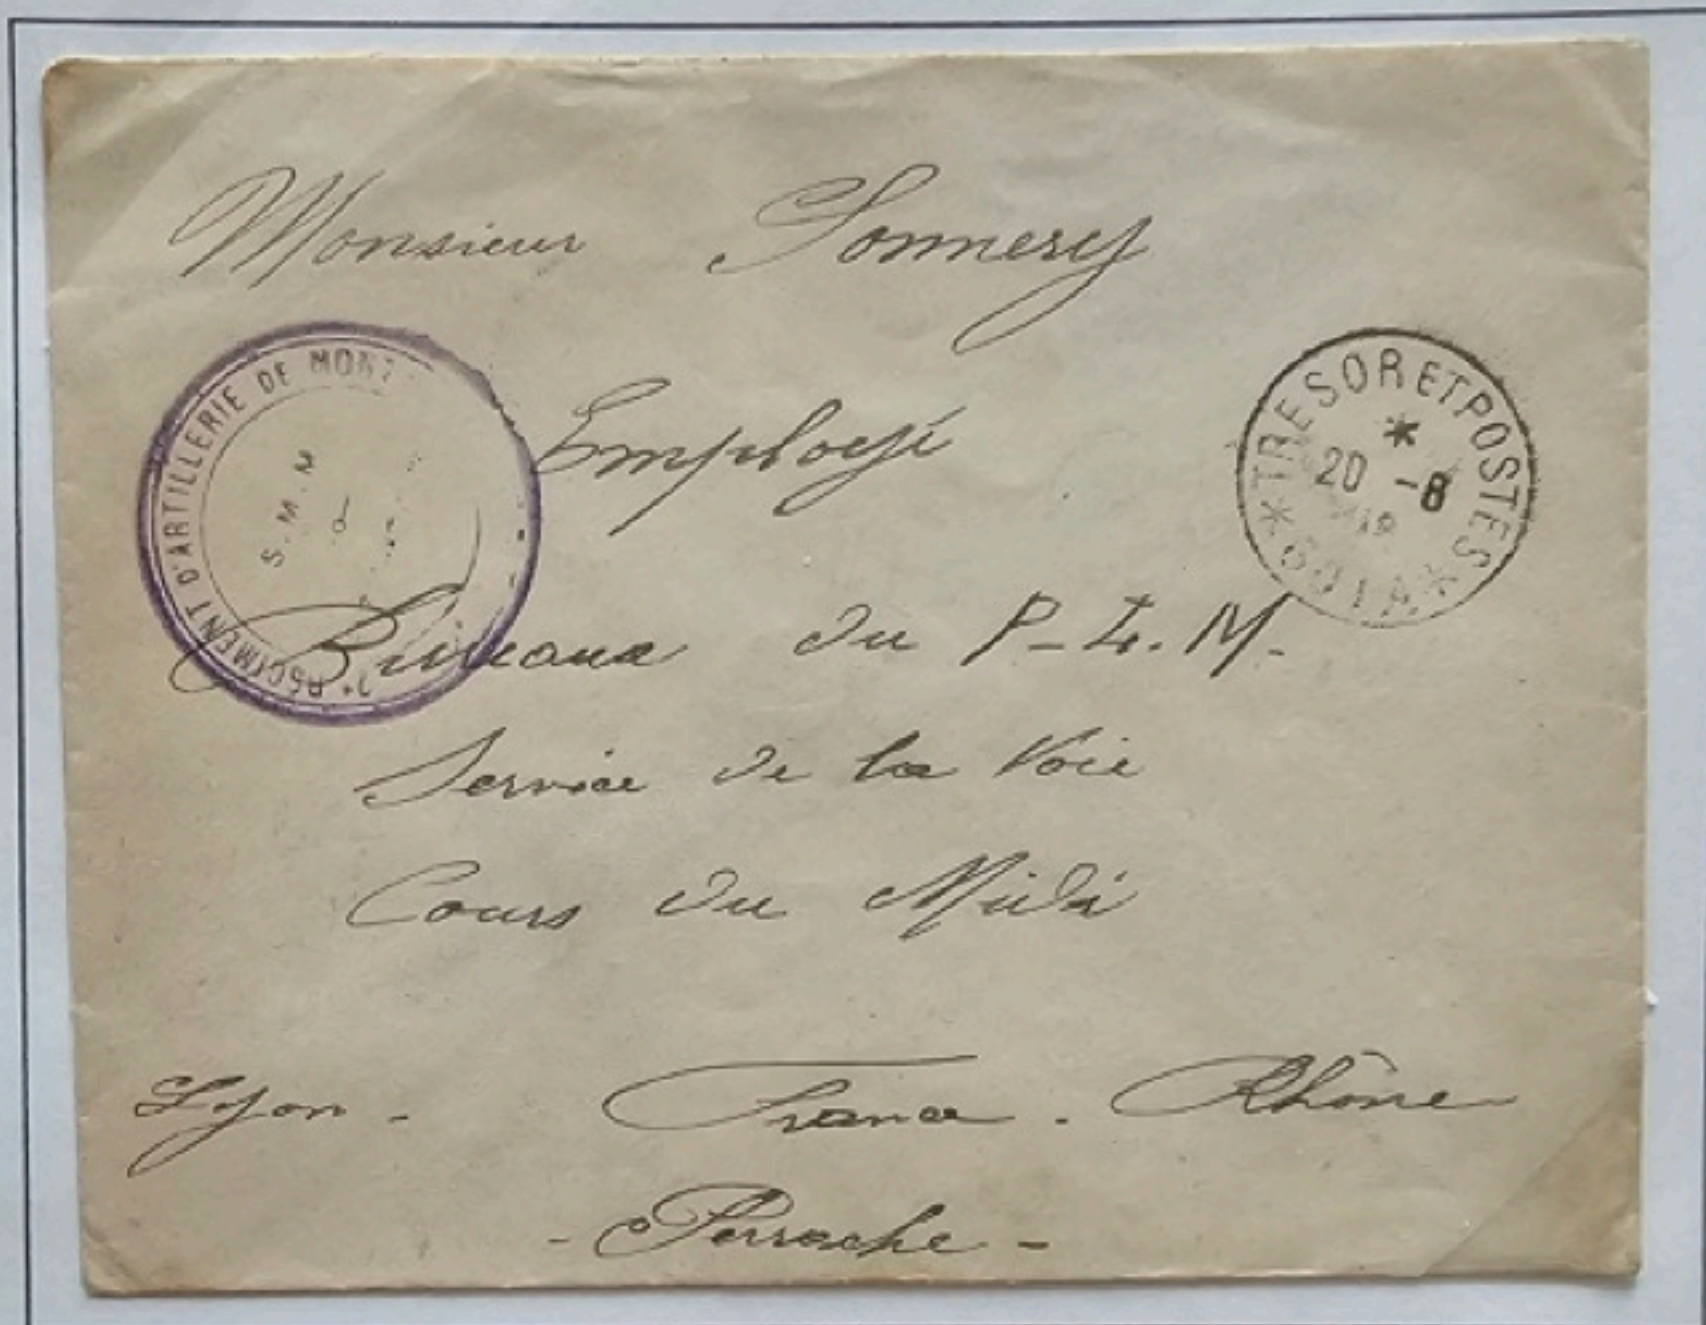 Monsieur Sonnery
2e REGIMENT D'ARTILLERIE DE MONT
S.M.M
* TRESOR ET POSTES *
*
20 -8
501A
Employé
Bureaux du P-L.M.
Service de la Voie
Cours du Midi
Lyon - France . Rhône
- Perrache -